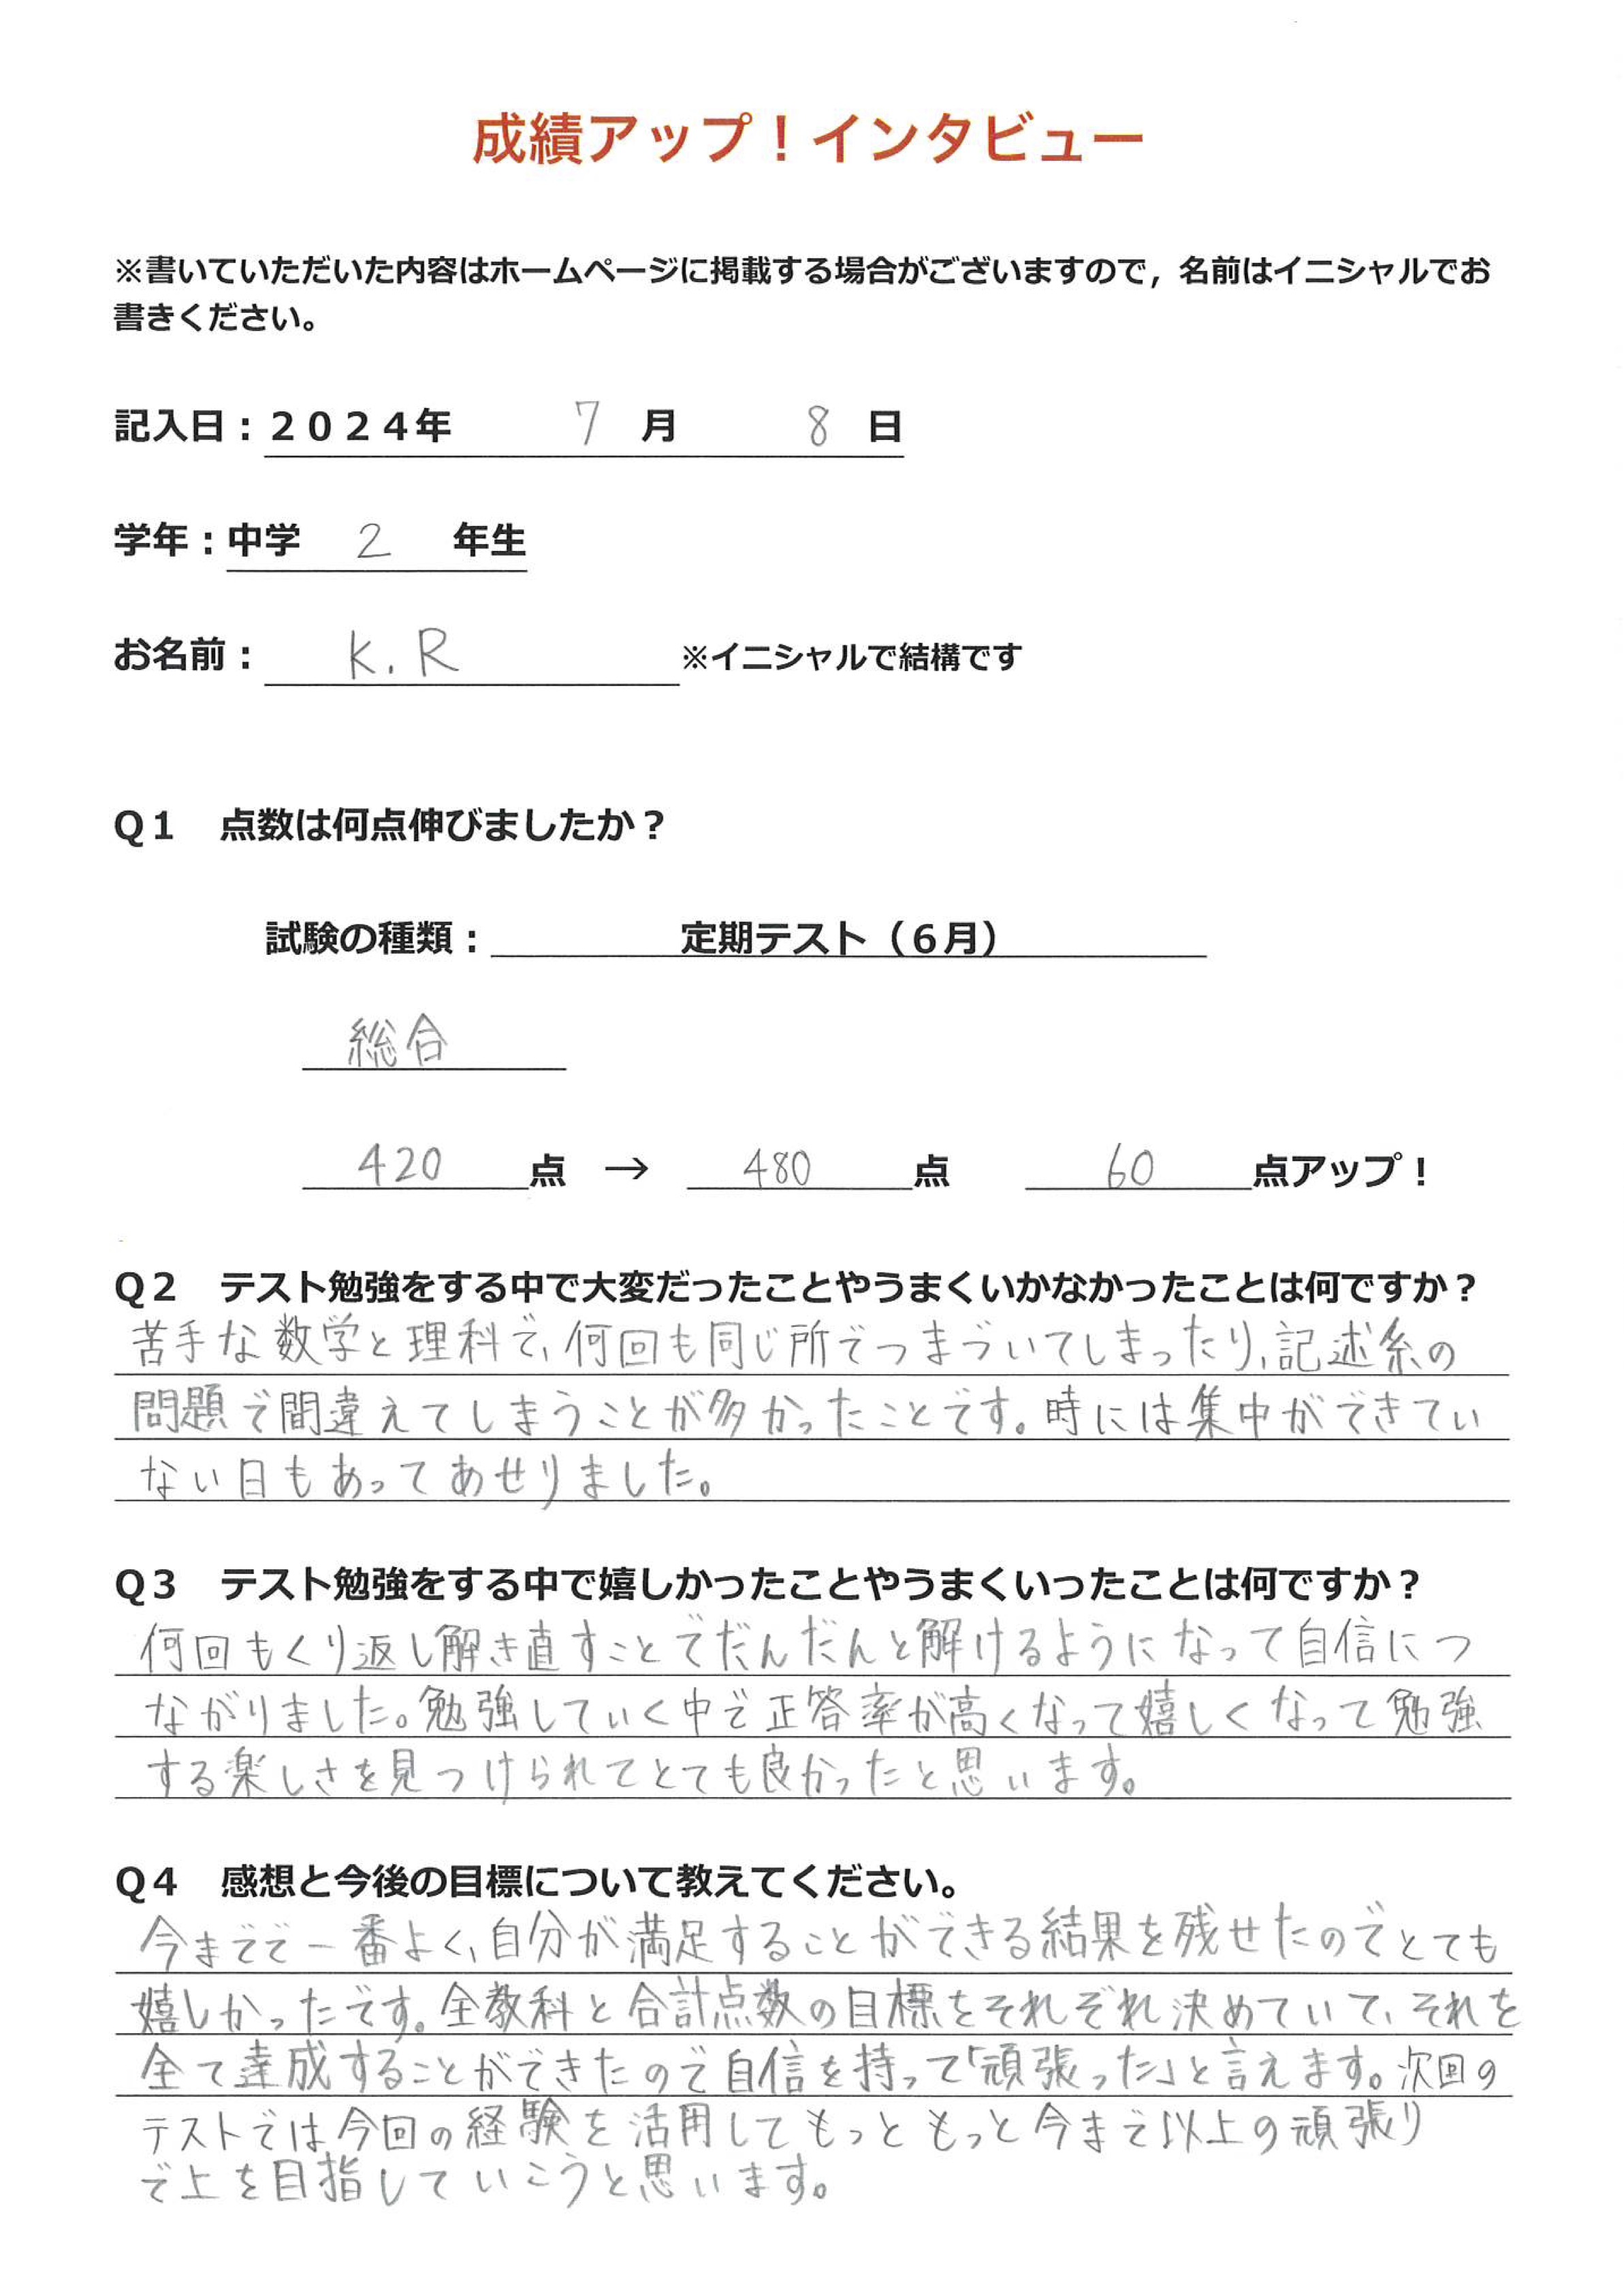 成績アップ！インタビュー
※書いていただいた内容はホームページに掲載する場合がございますので，名前はイニシャルでお
書きください。
記入日：２０２４年 7 月 8 日
学年：中学 2 年生
お名前： K.R ※イニシャルで結構です
Ｑ１ 点数は何点伸びましたか？
試験の種類： 定期テスト（６月）
総合
420 点 → 480 点 60 点アップ！
Ｑ２ テスト勉強をする中で大変だったことやうまくいかなかったことは何ですか？
苦手な数学と理科で、何回も同じ所でつまづいてしまったり、記述系の
問題で間違えてしまうことが多かったことです。時には集中ができてい
ない日もあってあせりました。
Ｑ３ テスト勉強をする中で嬉しかったことやうまくいったことは何ですか？
何回もくり返し解き直すことでだんだんと解けるようになって自信につ
ながりました。勉強していく中で正答率が高くなって嬉しくなって勉強
する楽しさを見つけられてとても良かったと思います。
Ｑ４ 感想と今後の目標について教えてください。
今までで一番よく、自分が満足することができる結果を残せたのでとても
嬉しかったです。全教科と合計点数の目標をそれぞれ決めていて、それを
全て達成することができたので自信を持って「頑張った」と言えます。次回の
テストでは今回の経験を活用してもっともっと今まで以上の頑張り
で上を目指していこうと思います。